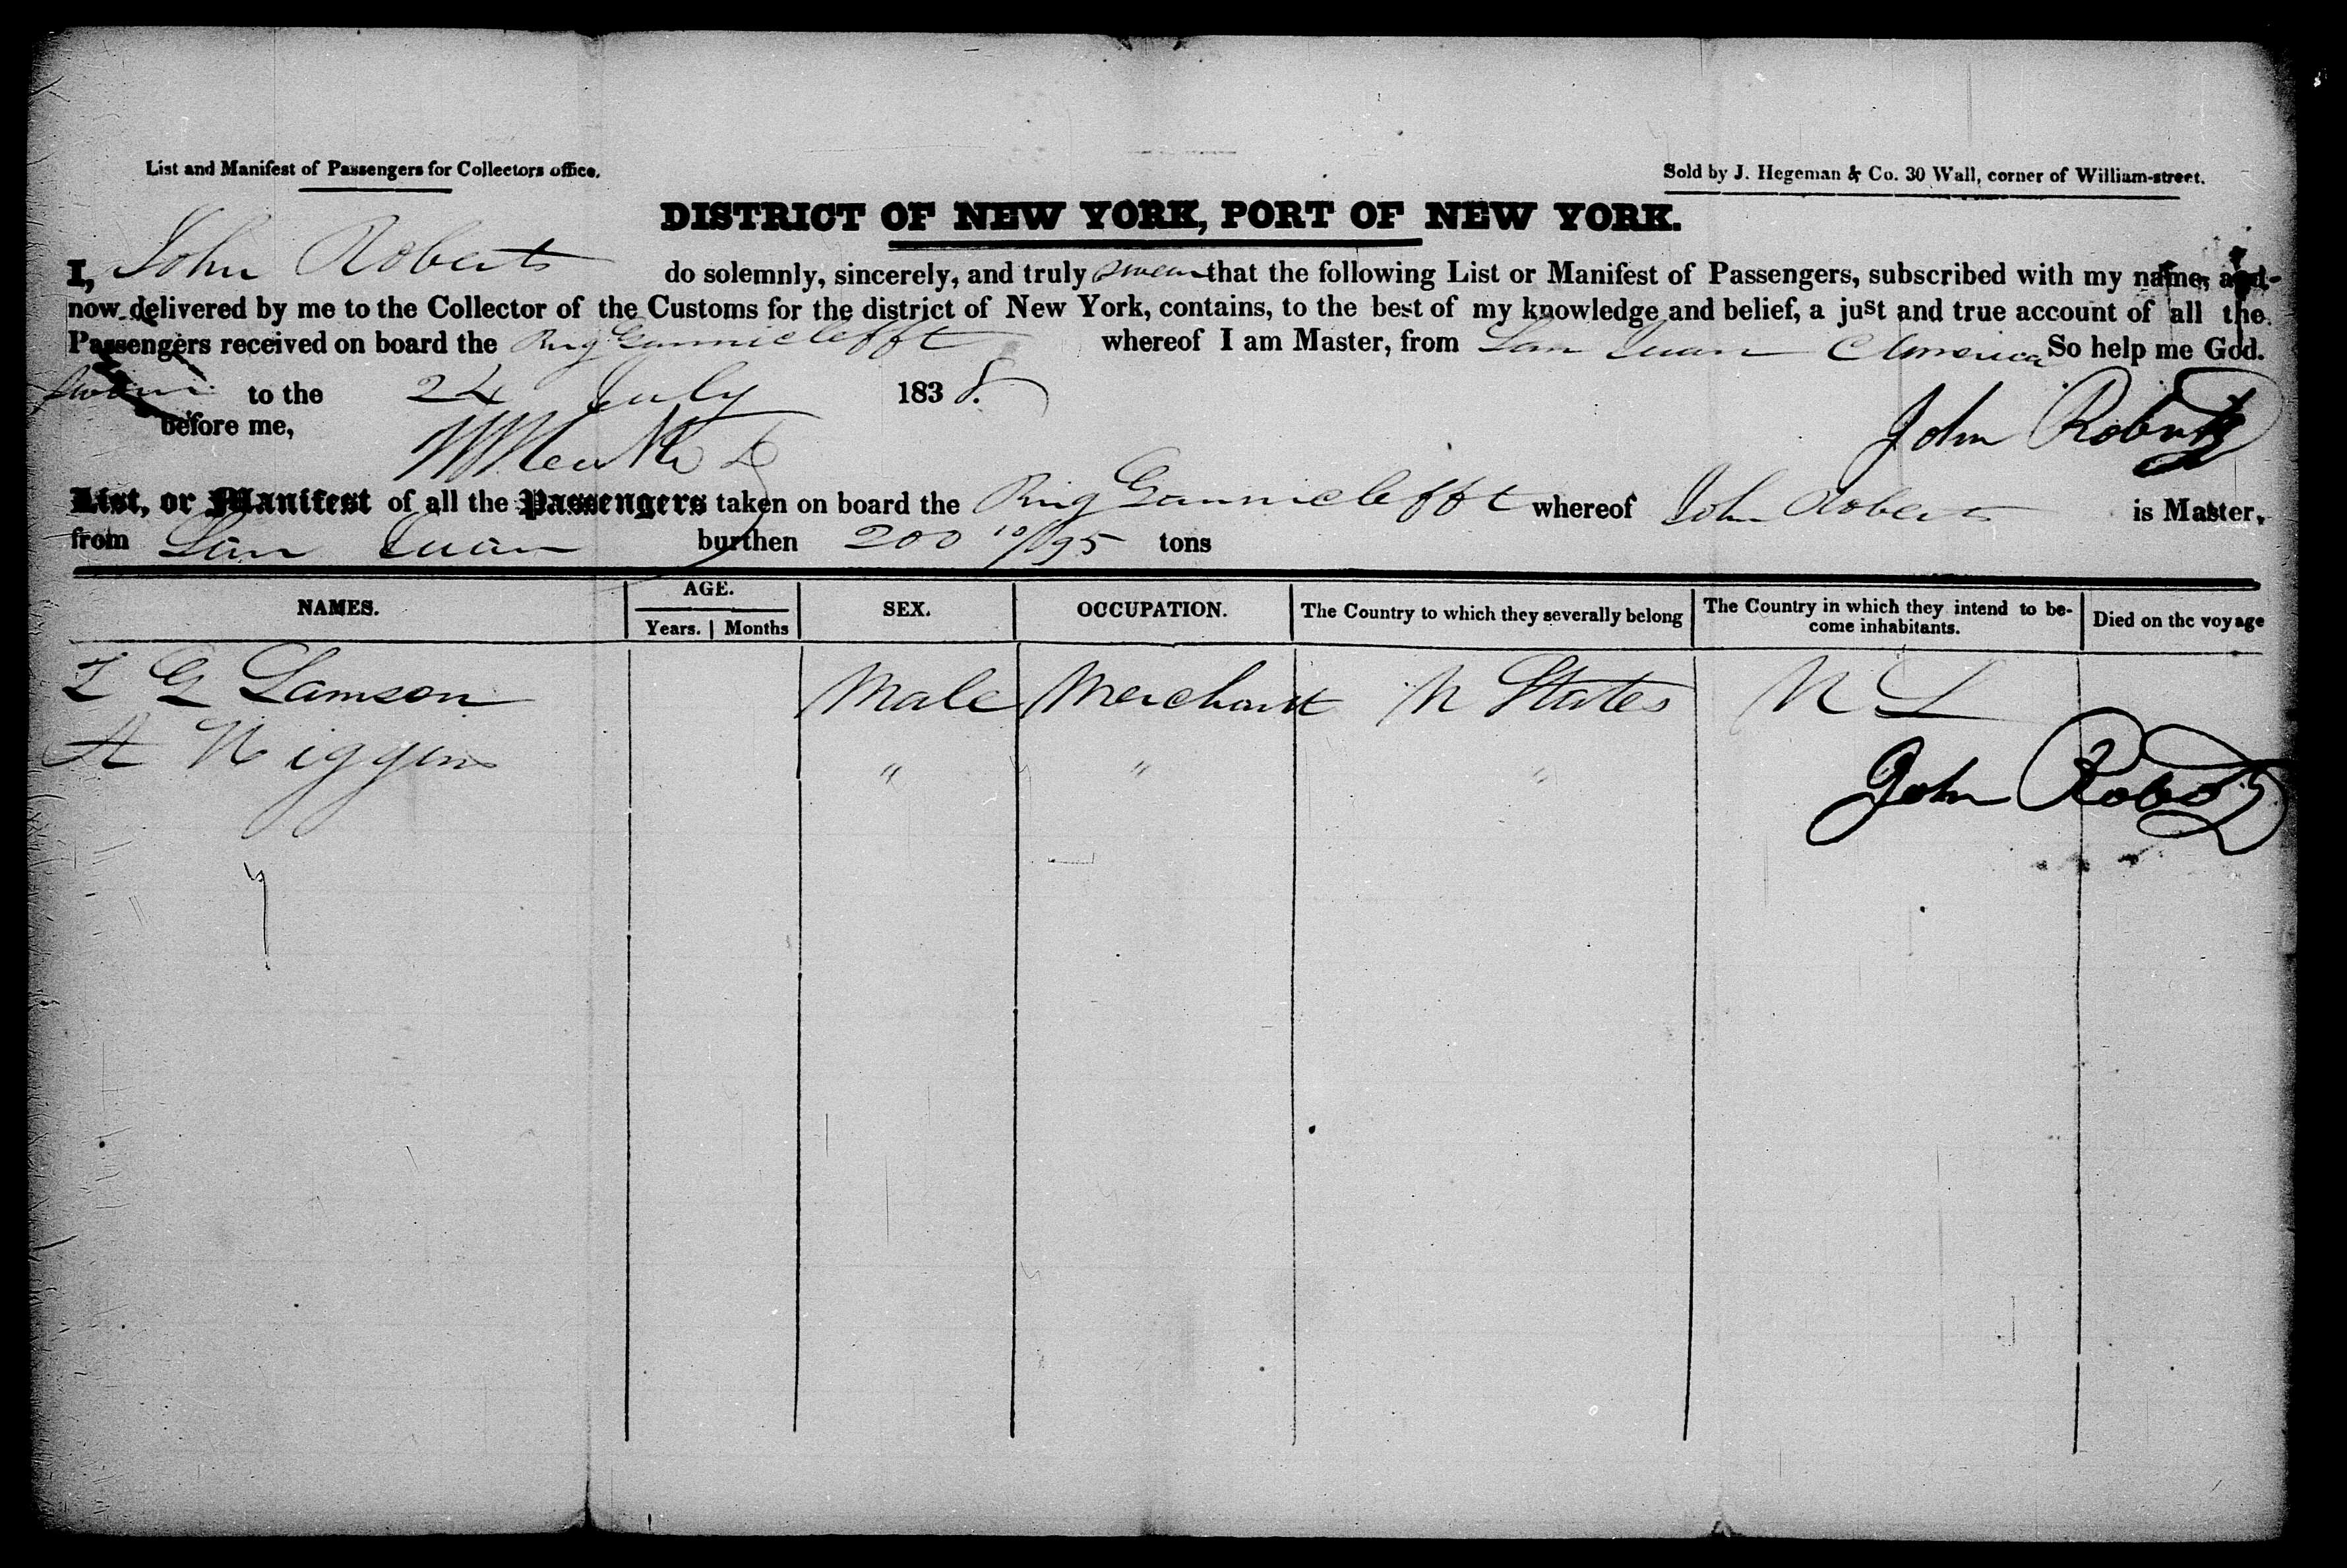 List and Manifest of Passengers for Collectors office.
Sold by J. Hegeman & Co. 30 Wall, corner of William-street.
DISTRICT OF NEW YORK, PORT OF NEW YORK.
I, John Roberts do solemnly, sincerely, and truly swear that the following List or Manifest of Passengers, subscribed with my name, and
now delivered by me to the Collector of the Customs for the district of New York, contains, to the best of my knowledge and belief, a just and true account of all the
Passengers received on board the whereof I am Master, from San Juan America So help me God.
Sworn to the 24 July 1838.
before me,
John Roberts
List, or Manifest of all the Passengers taken on board the whereof John Roberts is Master,
from San Juan burthen 200 10/95 tons
NAMES. AGE. SEX. OCCUPATION. The Country to which they severally belong The Country in which they intend to be-
come inhabitants. Died on the voyage
Years. Months
G Lamson Male Merchant States
Higgins " " "
John Roberts